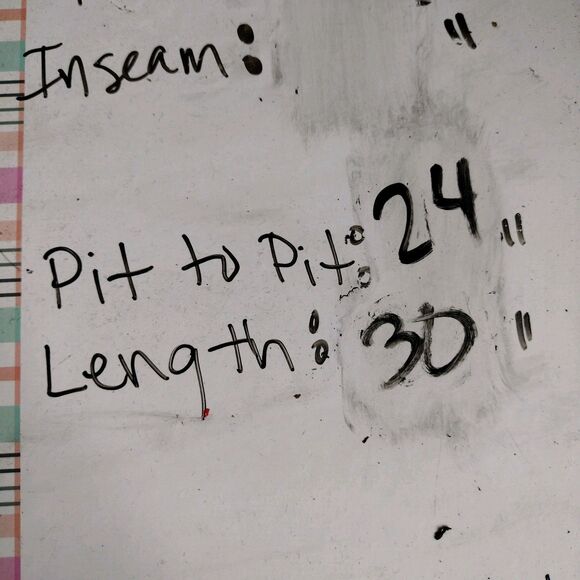 Inseam: "
Pit to Pit: 24"
Length: 30"